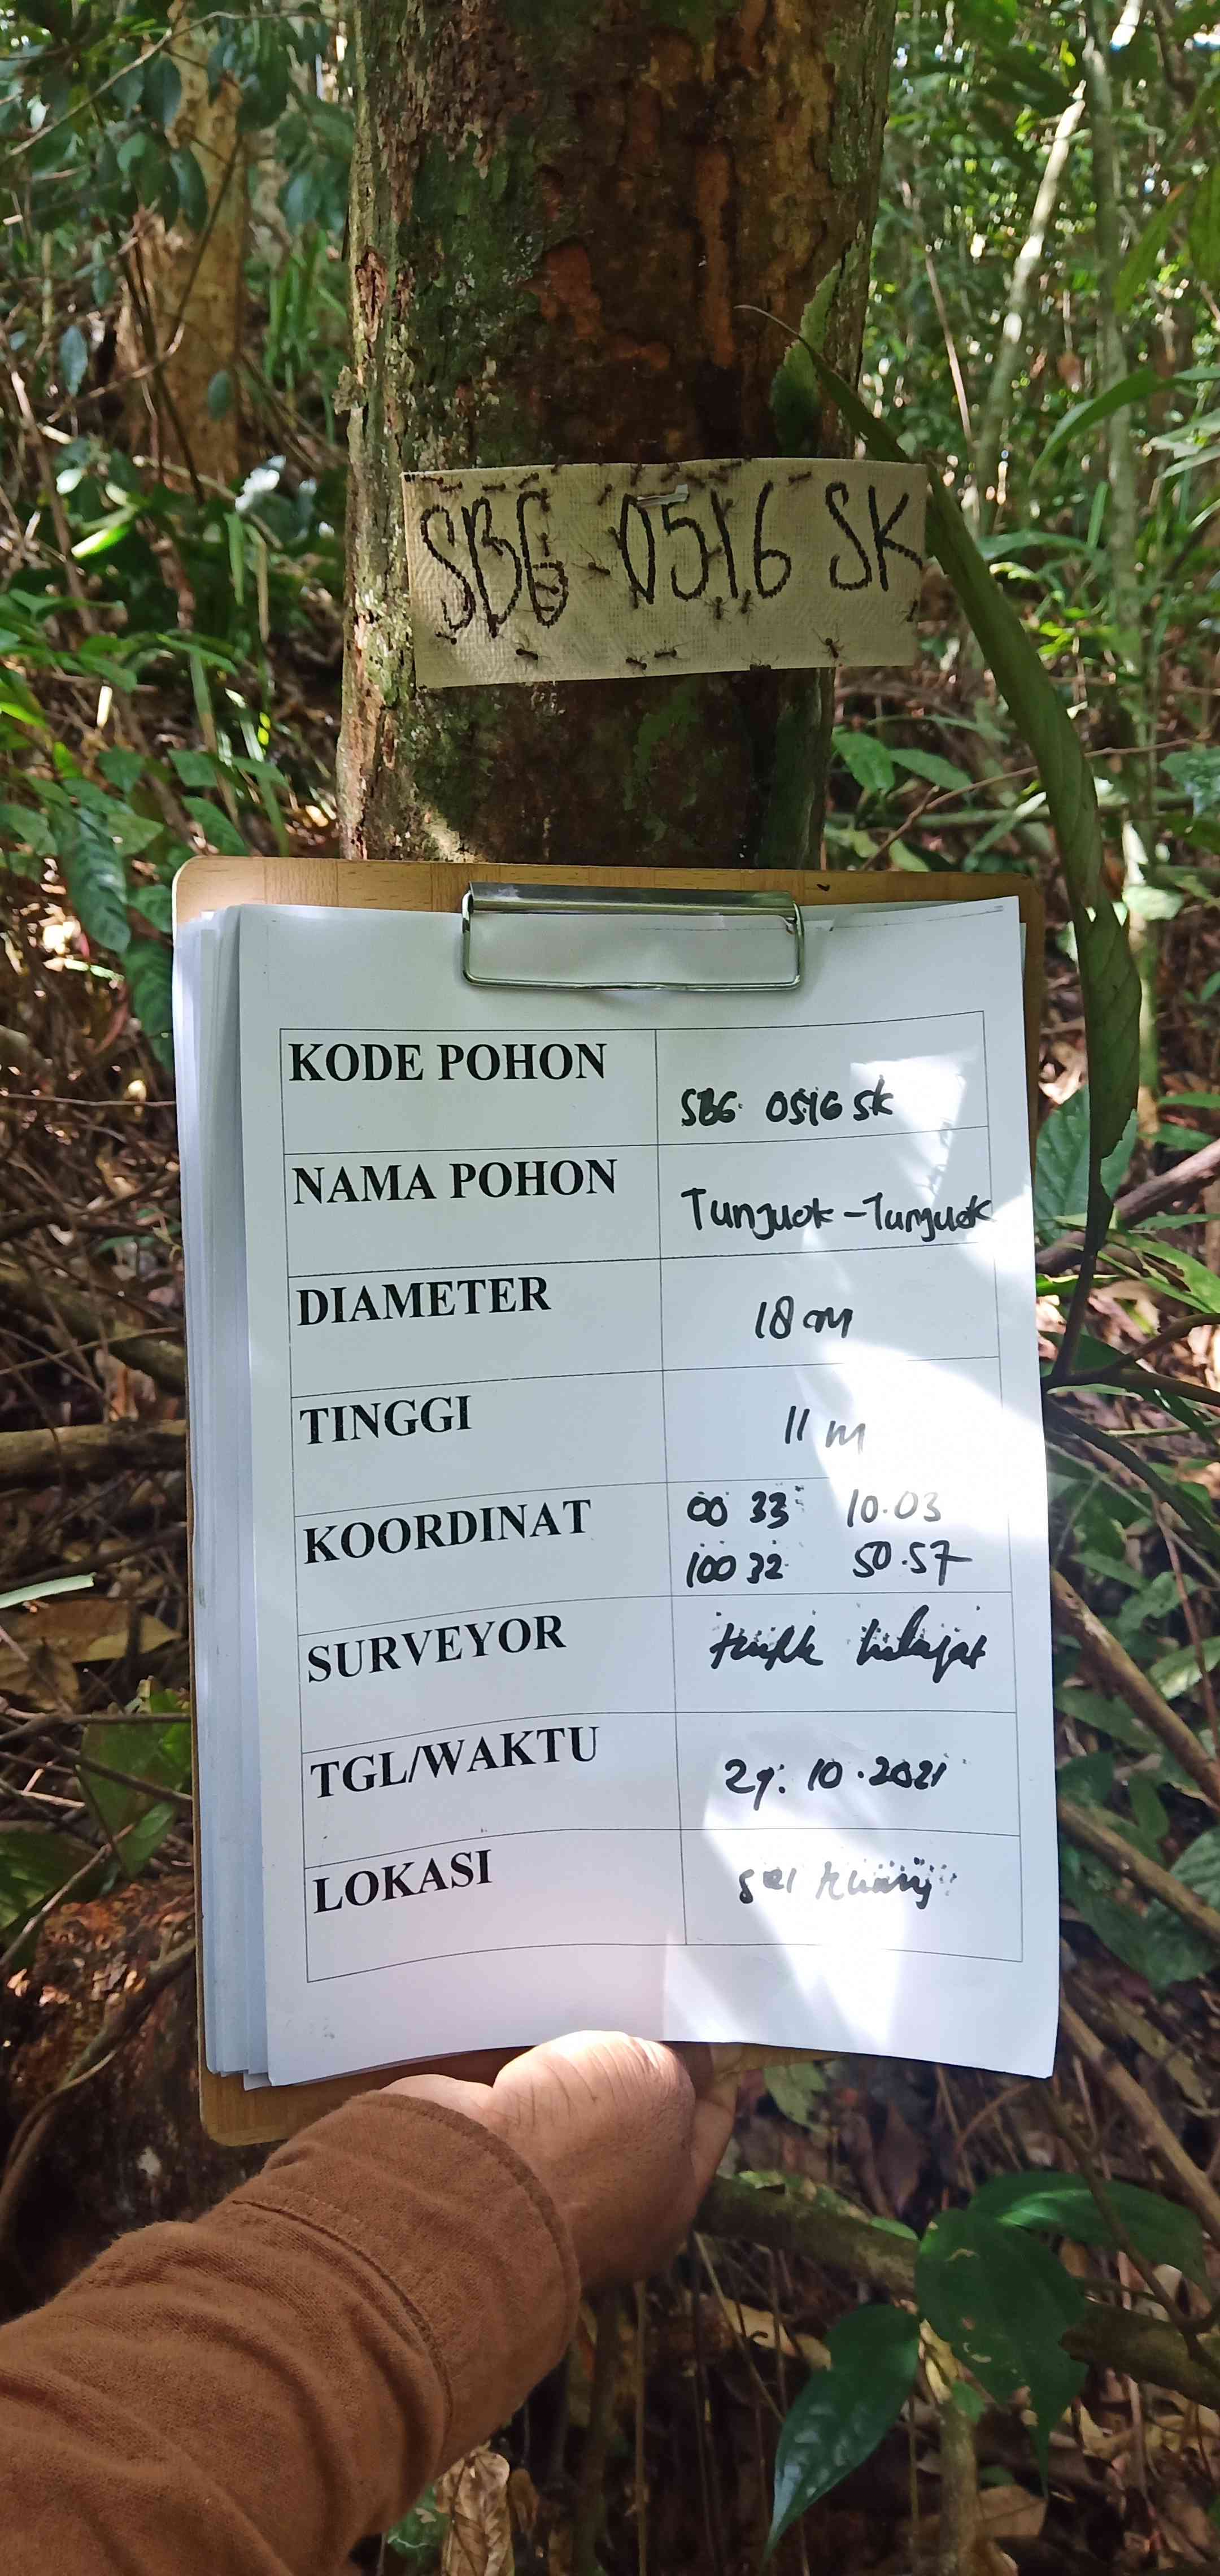 SBG 0516 SK
KODE POHON
SBG 0516 SK
NAMA POHON
Tunjuok-Tunjuok
DIAMETER
18 cm
TINGGI
11 m
KOORDINAT
00 33 10.03
100 32 50.57
SURVEYOR
TGL/WAKTU
29. 10. 2021
LOKASI